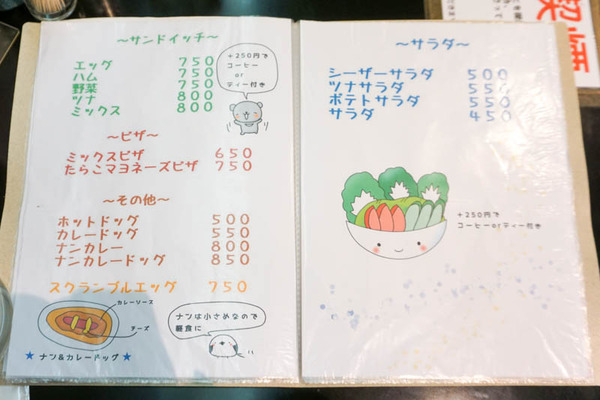 ～サンドイッチ～
エッグ 750
ハム 750
野菜 750
ツナ 800
ミックス 800
+250円で
コーヒー
or
ティー付き
～ピザ～
ミックスピザ 650
たらこマヨネーズピザ 750
～その他～
ホットドッグ 500
カレードッグ 550
ナンカレー 800
ナンカレードッグ 850
スクランブルエッグ 750
カレーソース
チーズ
★ナン&カレードッグ★
ナンは小さめなので
軽食に
～サラダ～
シーザーサラダ 500
ツナサラダ 550
ポテトサラダ 550
サラダ 450
+250円で
コーヒーorティー付き